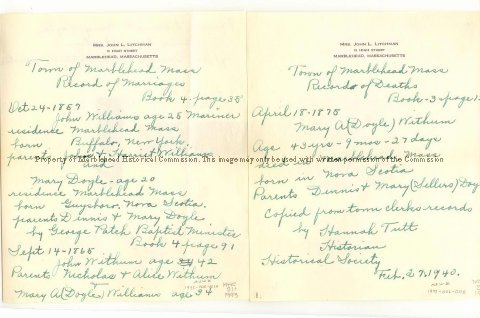 MRS. JOHN L. LITCHMAN
11 HIGH STREET
MARBLEHEAD, MASSACHUSETTS
Town of Marblehead Mass
Record of Marriages
Book 4-page 38
Oct 24-1857
John Williams age 25 Mariner
residence Marblehead Mass
born Buffalo, New York.
parents & Harriet Williams
and
Mary Doyle-age 20
residence Marblehead Mass
born Guysboro, Nova Scotia.
parents Dennis & Mary Doyle
by George Patch Baptist Minister
Book 4 page 91
Sept 14-1865
John Withum age 42
Parents Nicholas & Alice Withum
Mary A (Doyle) Williams age 34
MRS. JOHN L. LITCHMAN
11 HIGH STREET
MARBLEHEAD, MASSACHUSETTS
Town of Marblehead Mass
Record of Deaths
Book-3-page 1
April 18-1875
Mary A (Doyle) Withum
Age 43 yrs-9 mos-27 days
Marblehead Mass
born in Nova Scotia
Parents Dennis & Mary (Sellers) Doy
Copied from town clerks records
by Hannah Tutt
Historian
Historical Society
Feb. 27. 1940.
Property of Marblehead Historical Commission. This image may only be used with written permission of the Commission.